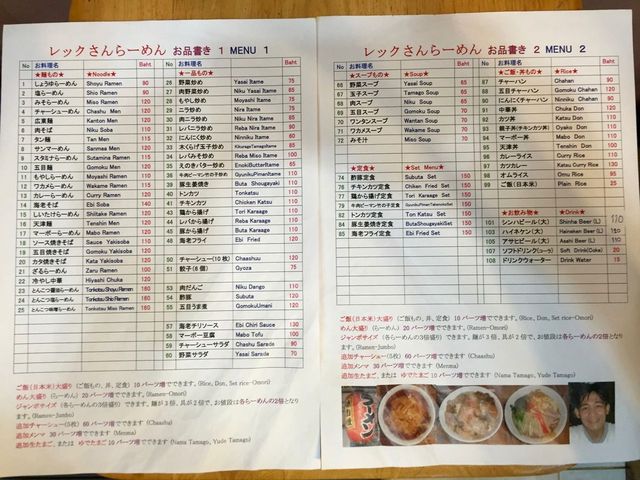 レックさんらーめん お品書き 1 MENU 1
No お料理名 Baht
★麺もの★ ★Noodle★
1 しょうゆらーめん Shoyu Ramen 90
2 塩らーめん Shio Ramen 90
3 みそらーめん Miso Ramen 90
4 チャーシューめん Chashu Ramen 120
6 広東麺 Kanton Men 120
6 肉そば Niku Soba 120
7 タン麺 Tan Men 115
8 サンマー麺 Sanmaa Men 115
9 スタミナらーめん Sutamina Ramen
10 五目麺 Gomoku Men
11 もやしらーめん Moyashi Ramen
12 ワカメらーめん Wakame Ramen
13 カレーらーめん Curry Ramen
14 海老そば Ebi Soba
15 しいたけらーめん Shiitake Ramen
16 天津麺 Tenshin Men
17 マーボーらーめん Mabo Ramen
18 ソース焼きそば Sauce Yakisoba
19 五目焼きそば Gomoku Yakisoba
20 カタ焼きそば Kata Yakisoba
21 ざるらーめん Zaru Ramen 100
22 冷やし中華 Hiyashi Chuka
23 とんこつ醤油らーめん Tonkotsu Shoyu Ramen 160
24 とんこつ塩らーめん Tonkotsu Shio Ramen 160
25 とんこつ味噌らーめん Tonkotsu Miso Ramen 160
No お料理名 Baht
★一品もの★
26 野菜炒め Yasai Itame 75
27 肉野菜炒め Niku Yasai Itame 85
28 もやし炒め Moyashi Itame
29 ニラ炒め Nira Itame
30 肉ニラ炒め Niku Nira Itame
31 レバニラ炒め Reba Nira Itame
32 にんにく炒め Ninniku Itame
33 木くらげ玉子炒め KikurageTamagoItame
34 レバみそ炒め Reba Miso Itame
35 えのきバター炒め EnokiButterItame
36 牛肉ピーマンの子炒め GyunikuPimanItame
39 豚生姜焼き Buta Shougayaki
40 トンカツ Tonkatsu
41 チキンカツ Chicken Katsu
43 鶏から揚げ Tori Karaage
44 レバから揚げ Reba Karaage
45 豚から揚げ Buta Karaage
48 海老フライ Ebi Fried 120
50 チャーシュー(10枚) Chaashuu 120
51 餃子(6個) Gyoza 75
53 肉だんご Niku Dango 110
54 酢豚 Subuta 120
55 五目うま煮 GomokuUmani 120
57 海老チリソース Ebi Chiri Sauce 130
58 マーボー豆腐 Mabo Tofu 100
59 チャーシューサラダ Chashu Sarada 90
60 野菜サラダ Yasai Sarada 70
ご飯(日本米)大盛り (ご飯もの、丼、定食) 10 バーツ増でできます。(Rice, Don, Set rice-Omori)
めん大盛り (らーめん) 20 バーツ増でできます。(Ramen-Omori)
ジャンボサイズ (各らーめんの3倍盛り) できます。麺が3倍、具が2倍で、お値段は各らーめんの2倍となります。(Ramen-Jumbo)
追加チャーシュー(5枚) 60 バーツ増でできます (Chaashu)
追加メンマ 30 バーツ増でできます (Menma)
追加生たまご、または ゆでたまご10バーツ増でできます (Nama Tamago, Yude Tamago)
レックさんらーめん お品書き 2 MENU 2
No お料理名 Baht
★スープもの★ ★Soup★
66 野菜スープ Yasai Soup 70
67 玉子スープ Tamago Soup 60
68 肉スープ Niku Soup 70
69 五目スープ Gomoku Soup 70
70 ワンタンスープ Wantan Soup 70
71 ワカメスープ Wakame Soup 70
72 みそ汁 Miso Soup 30
★定食★ ★Set Menu★
74 酢豚定食 Subuta Set 150
76 チキンカツ定食 Chiken Fried Set 150
77 鶏から揚げ定食 Tori Karaage Set 150
79 牛肉ピーマンの子定食 GyunikuPimanItameSet 150
82 トンカツ定食 Ton Katsu Set 150
84 豚生姜焼き定食 ButaShougayakiSet 150
85 海老フライ定食 Ebi Fried Set 150
No お料理名 Baht
★ご飯・丼もの★ ★Rice★
87 チャーハン Chahan 90
88 五目チャーハン Gomoku Chahan 120
90 にんにくチャーハン Ninniku Chahan
91 中華丼 Chuka Don
92 カツ丼 Katsu Don
93 親子丼(チキンカツ丼) Oyako Don
94 マーボー丼 Mabo Don
95 天津丼 Tenshin Don
96 カレーライス Curry Rice
97 カツカレー Katsu Curry Rice 130
98 オムライス Omu Rice 95
99 ご飯(日本米) Plain Rice 25
★お飲み物★ ★Drink★
101 シンハビール(大) Shinha Beer (L) 110
102 ハイネケン(大) Haineken Beer (L)
105 アサヒビール(大) Asahi Beer (L) 110
107 ソフトドリンク(コーラ) Soft Drink(Coke) 20
108 ドリンクウォーター Drink Water 15
ご飯(日本米)大盛り (ご飯もの、丼、定食) 10 バーツ増でできます。(Rice, Don, Set rice-Omori)
めん大盛り (らーめん) 20 バーツ増でできます。(Ramen-Omori)
ジャンボサイズ (各らーめんの3倍盛り) できます。麺が3倍、具が2倍で、お値段は各らーめんの2倍となります。(Ramen-Jumbo)
追加チャーシュー(5枚) 60 バーツ増でできます (Chaashu)
追加メンマ 30 バーツ増でできます (Menma)
追加生たまご、または ゆでたまご10バーツ増でできます (Nama Tamago, Yude Tamago)
ラーメン